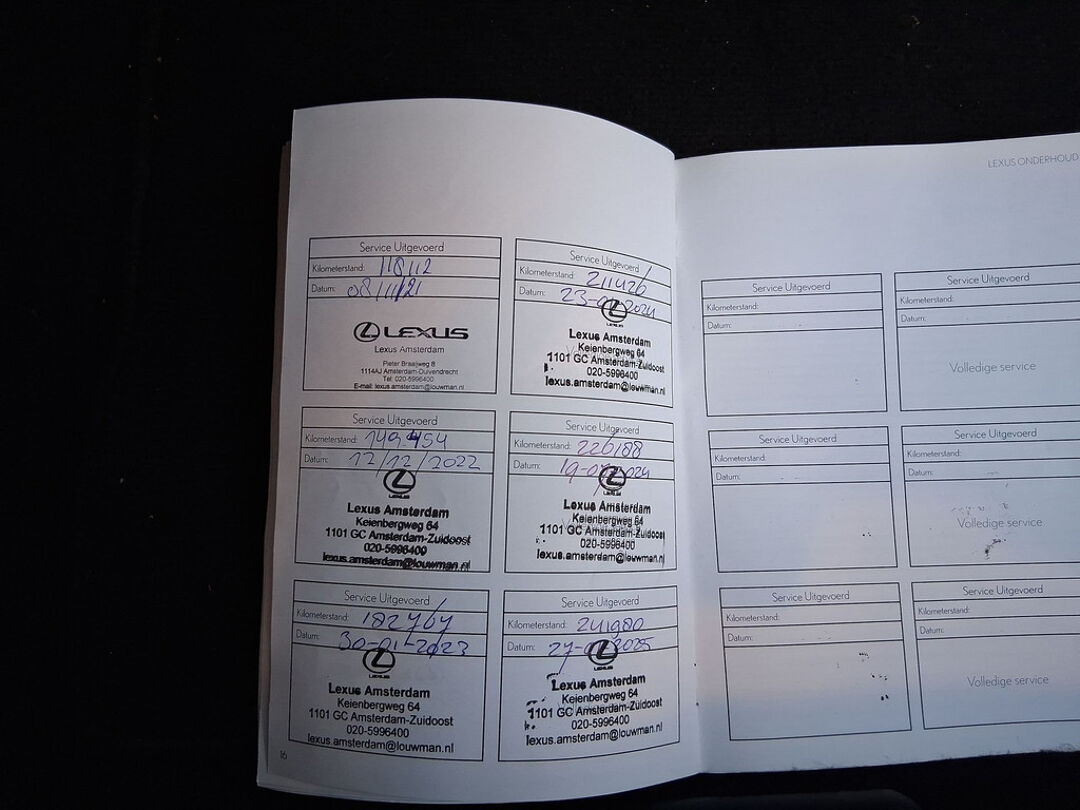 LEXUS ONDERHOUD
Service Uitgevoerd
Kilometerstand: 118112
Datum: 08/11/21
LEXUS
Lexus Amsterdam
Pieter Braaijweg 8
1114AJ Amsterdam-Duivendrecht
Tel: 020-5996400
E-mail: lexus.amsterdam@louwman.nl
Service Uitgevoerd
Kilometerstand: 149.454
Datum: 12/12/2022
LEXUS
Lexus Amsterdam
Keienbergweg 64
1101 GC Amsterdam-Zuidoost
020-5996400
lexus.amsterdam@louwman.nl
Service Uitgevoerd
Kilometerstand: 182767
Datum: 30-01-2023
LEXUS
Lexus Amsterdam
Keienbergweg 64
1101 GC Amsterdam-Zuidoost
020-5996400
lexus.amsterdam@louwman.nl
16
Service Uitgevoerd
Kilometerstand: 211426
Datum:
LEXUS
Lexus Amsterdam
Keienbergweg 64
1101 GC Amsterdam-Zuidoost
020-5996400
lexus.amsterdam@louwman.nl
Service Uitgevoerd
Kilometerstand: 226188
Datum:
LEXUS
Lexus Amsterdam
Keienbergweg 64
1101 GC Amsterdam-Zuidoost
020-5996400
lexus.amsterdam@louwman.nl
Service Uitgevoerd
Kilometerstand: 241980
Datum:
LEXUS
Lexus Amsterdam
Keienbergweg 64
1101 GC Amsterdam-Zuidoost
020-5996400
lexus.amsterdam@louwman.nl
Service Uitgevoerd
Kilometerstand:
Datum:
Service Uitgevoerd
Kilometerstand:
Datum:
Service Uitgevoerd
Kilometerstand:
Datum:
Service Uitgevoerd
Kilometerstand:
Datum:
Volledige service
Service Uitgevoerd
Kilometerstand:
Datum:
Volledige service
Service Uitgevoerd
Kilometerstand:
Datum:
Volledige service